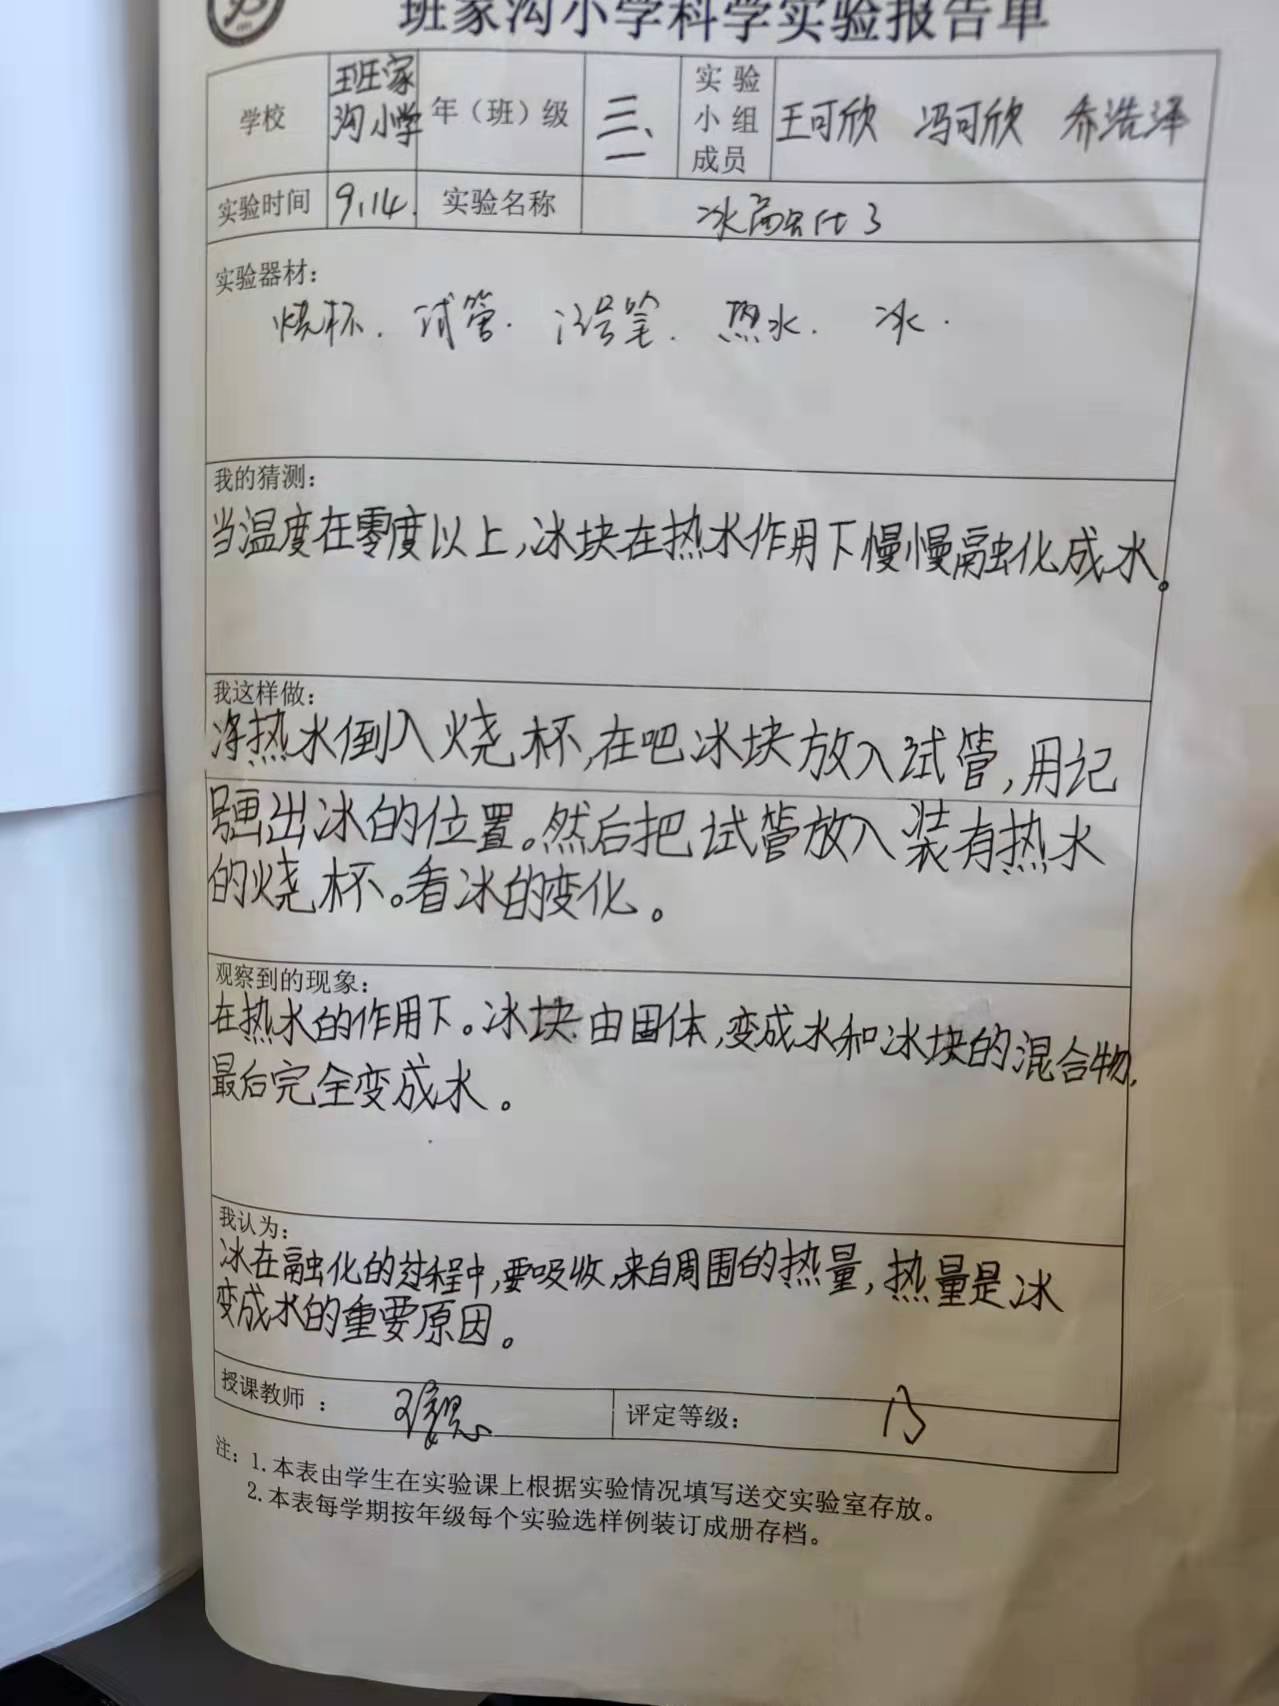 班家沟小学科学实验报告单
学校 班家沟小学 年（班）级 三、一 实验小组成员 王可欣 冯可欣 乔浩泽
实验时间 9.14. 实验名称 冰融化了
实验器材：
烧杯. 试管. 记号笔. 热水. 冰.
我的猜测：
当温度在零度以上，冰块在热水作用下慢慢融化成水。
我这样做：
净热水倒入烧杯，在吧冰块放入试管，用记
号画出冰的位置。然后把试管放入装有热水
的烧杯。看冰的变化。
观察到的现象：
在热水的作用下。冰块由固体，变成水和冰块的混合物，
最后完全变成水。
我认为：
冰在融化的过程中，要吸收，来自周围的热量，热量是冰
变成水的重要原因。
授课教师： 评定等级：
注：1.本表由学生在实验课上根据实验情况填写送交实验室存放。
2.本表每学期按年级每个实验选样例装订成册存档。